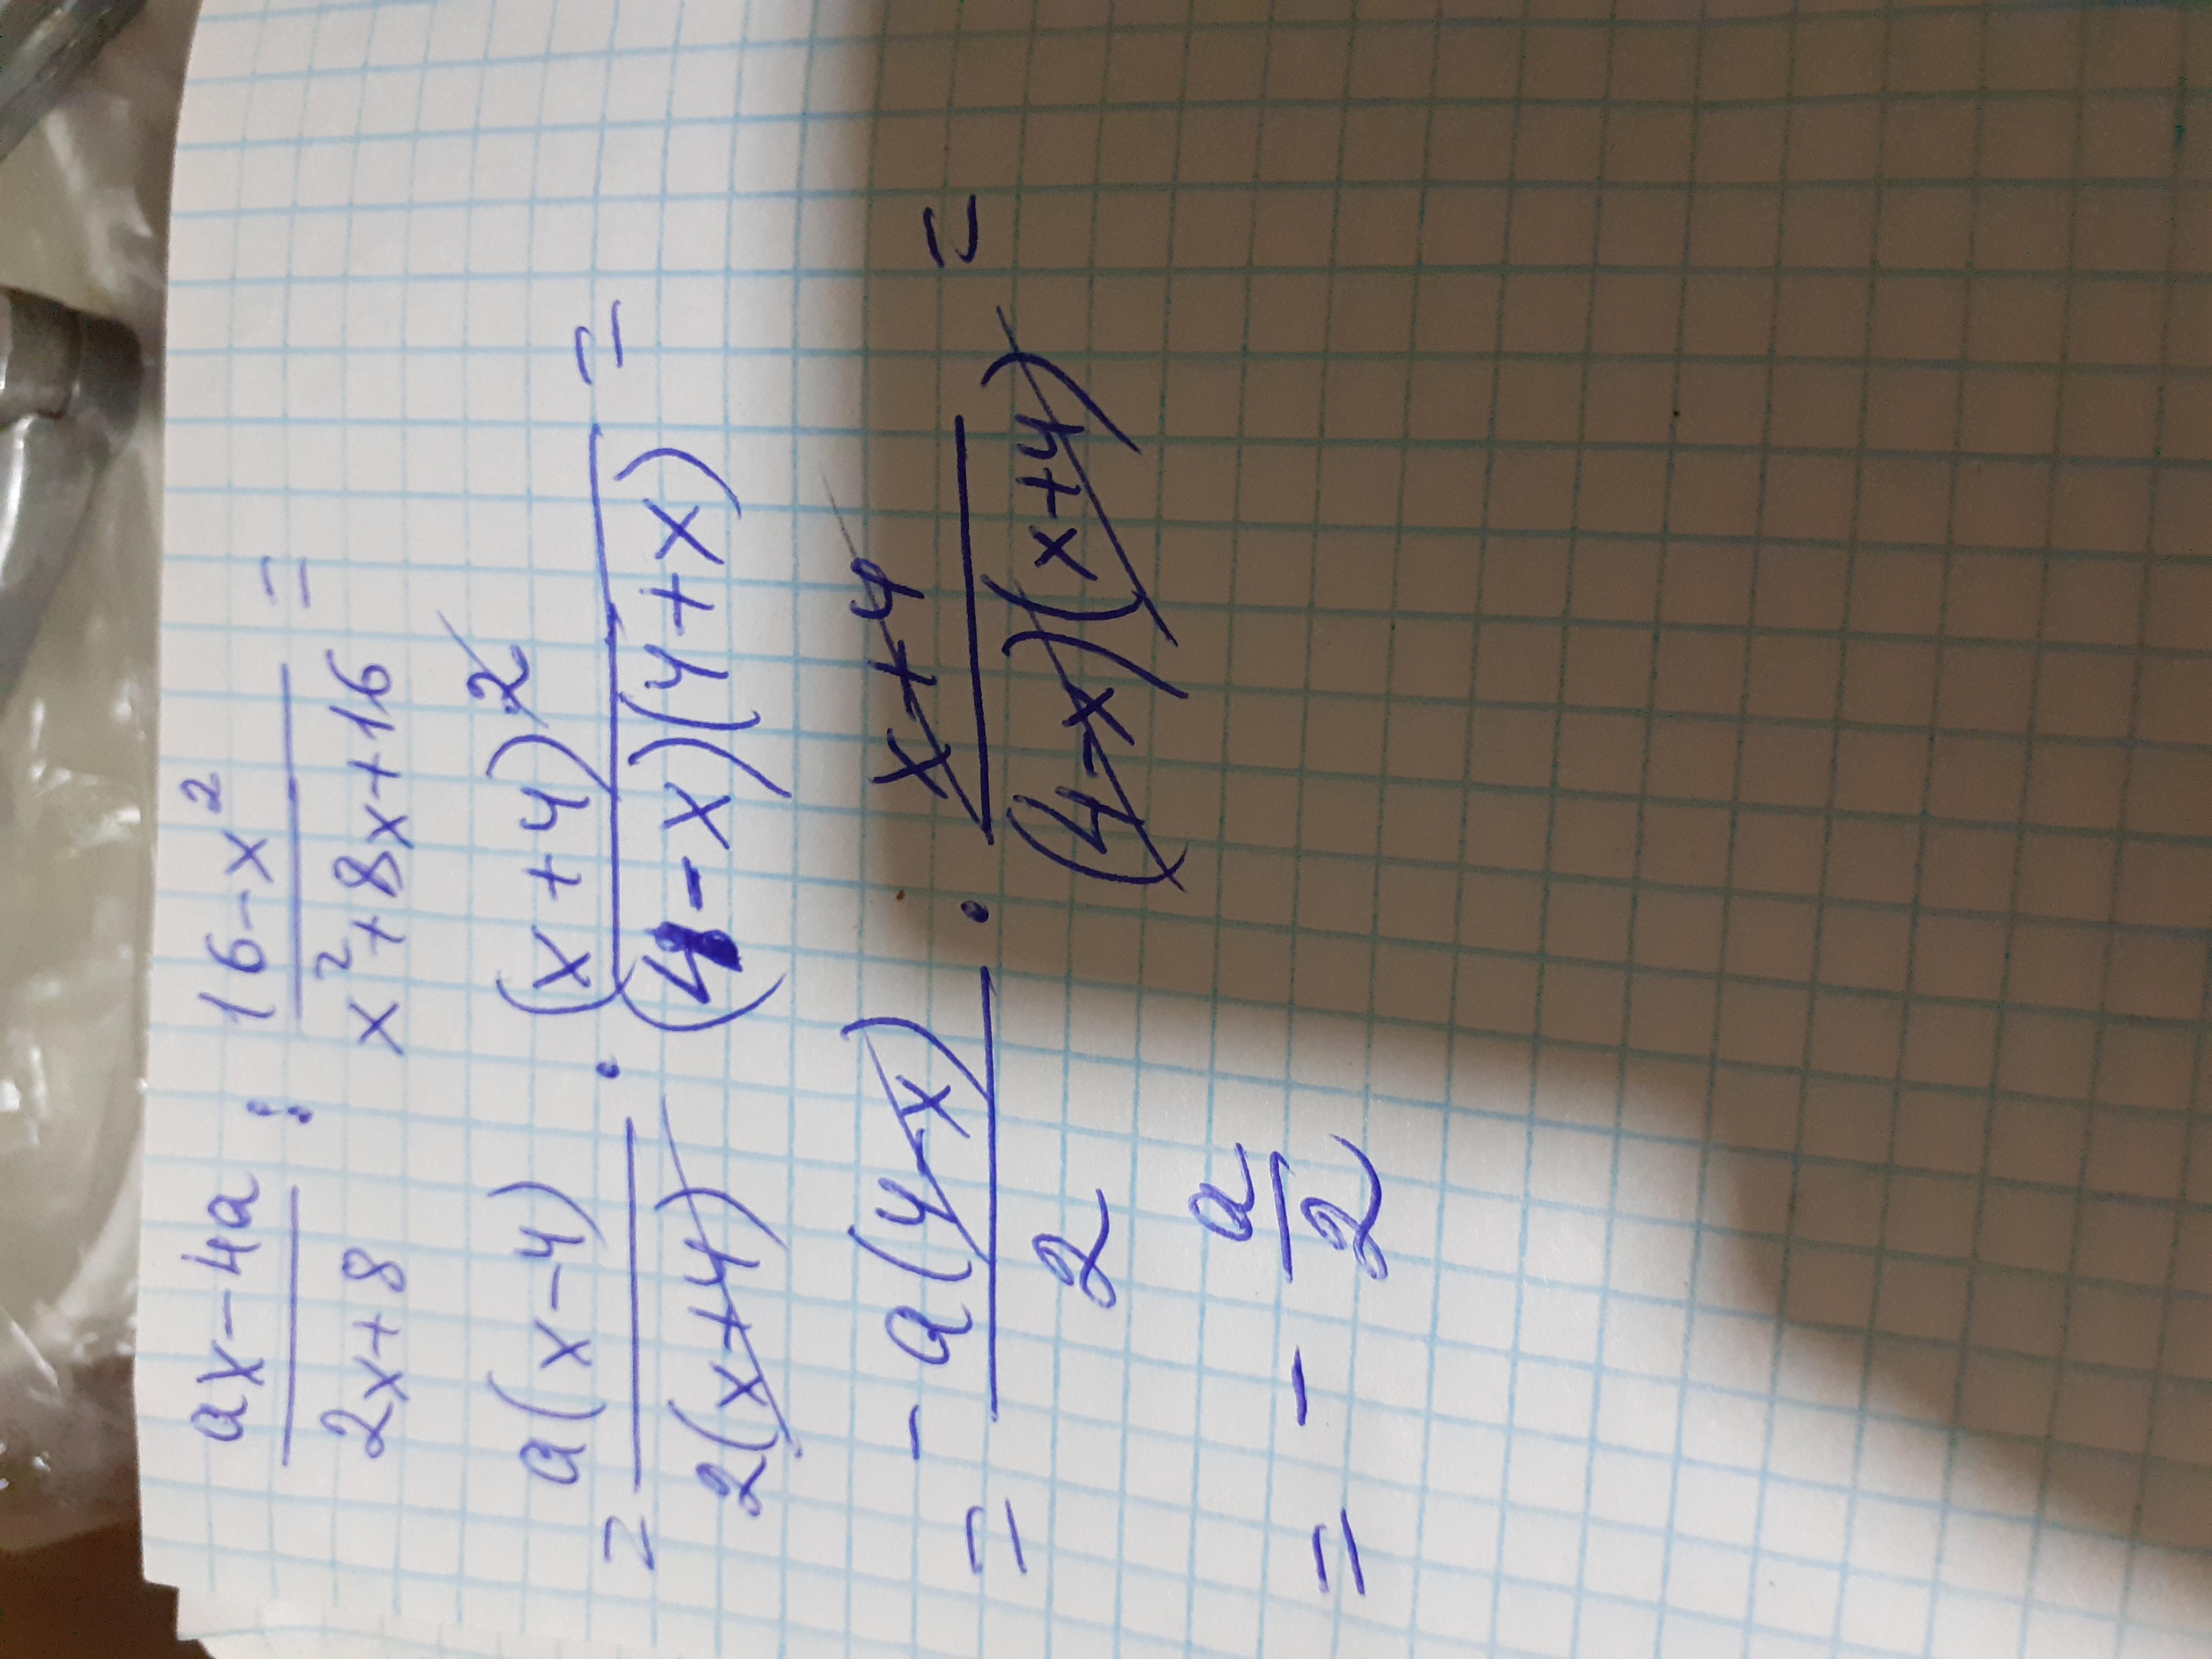 (ax-4a)/(2x+8) : (16-x²)/(x²+8x+16) =
= a(x-4)/2(x+4) · (x+4)²/(4-x)(4+x) =
= -a(4-x)/2 · x+4/(4-x)(x+4) =
= - a/2